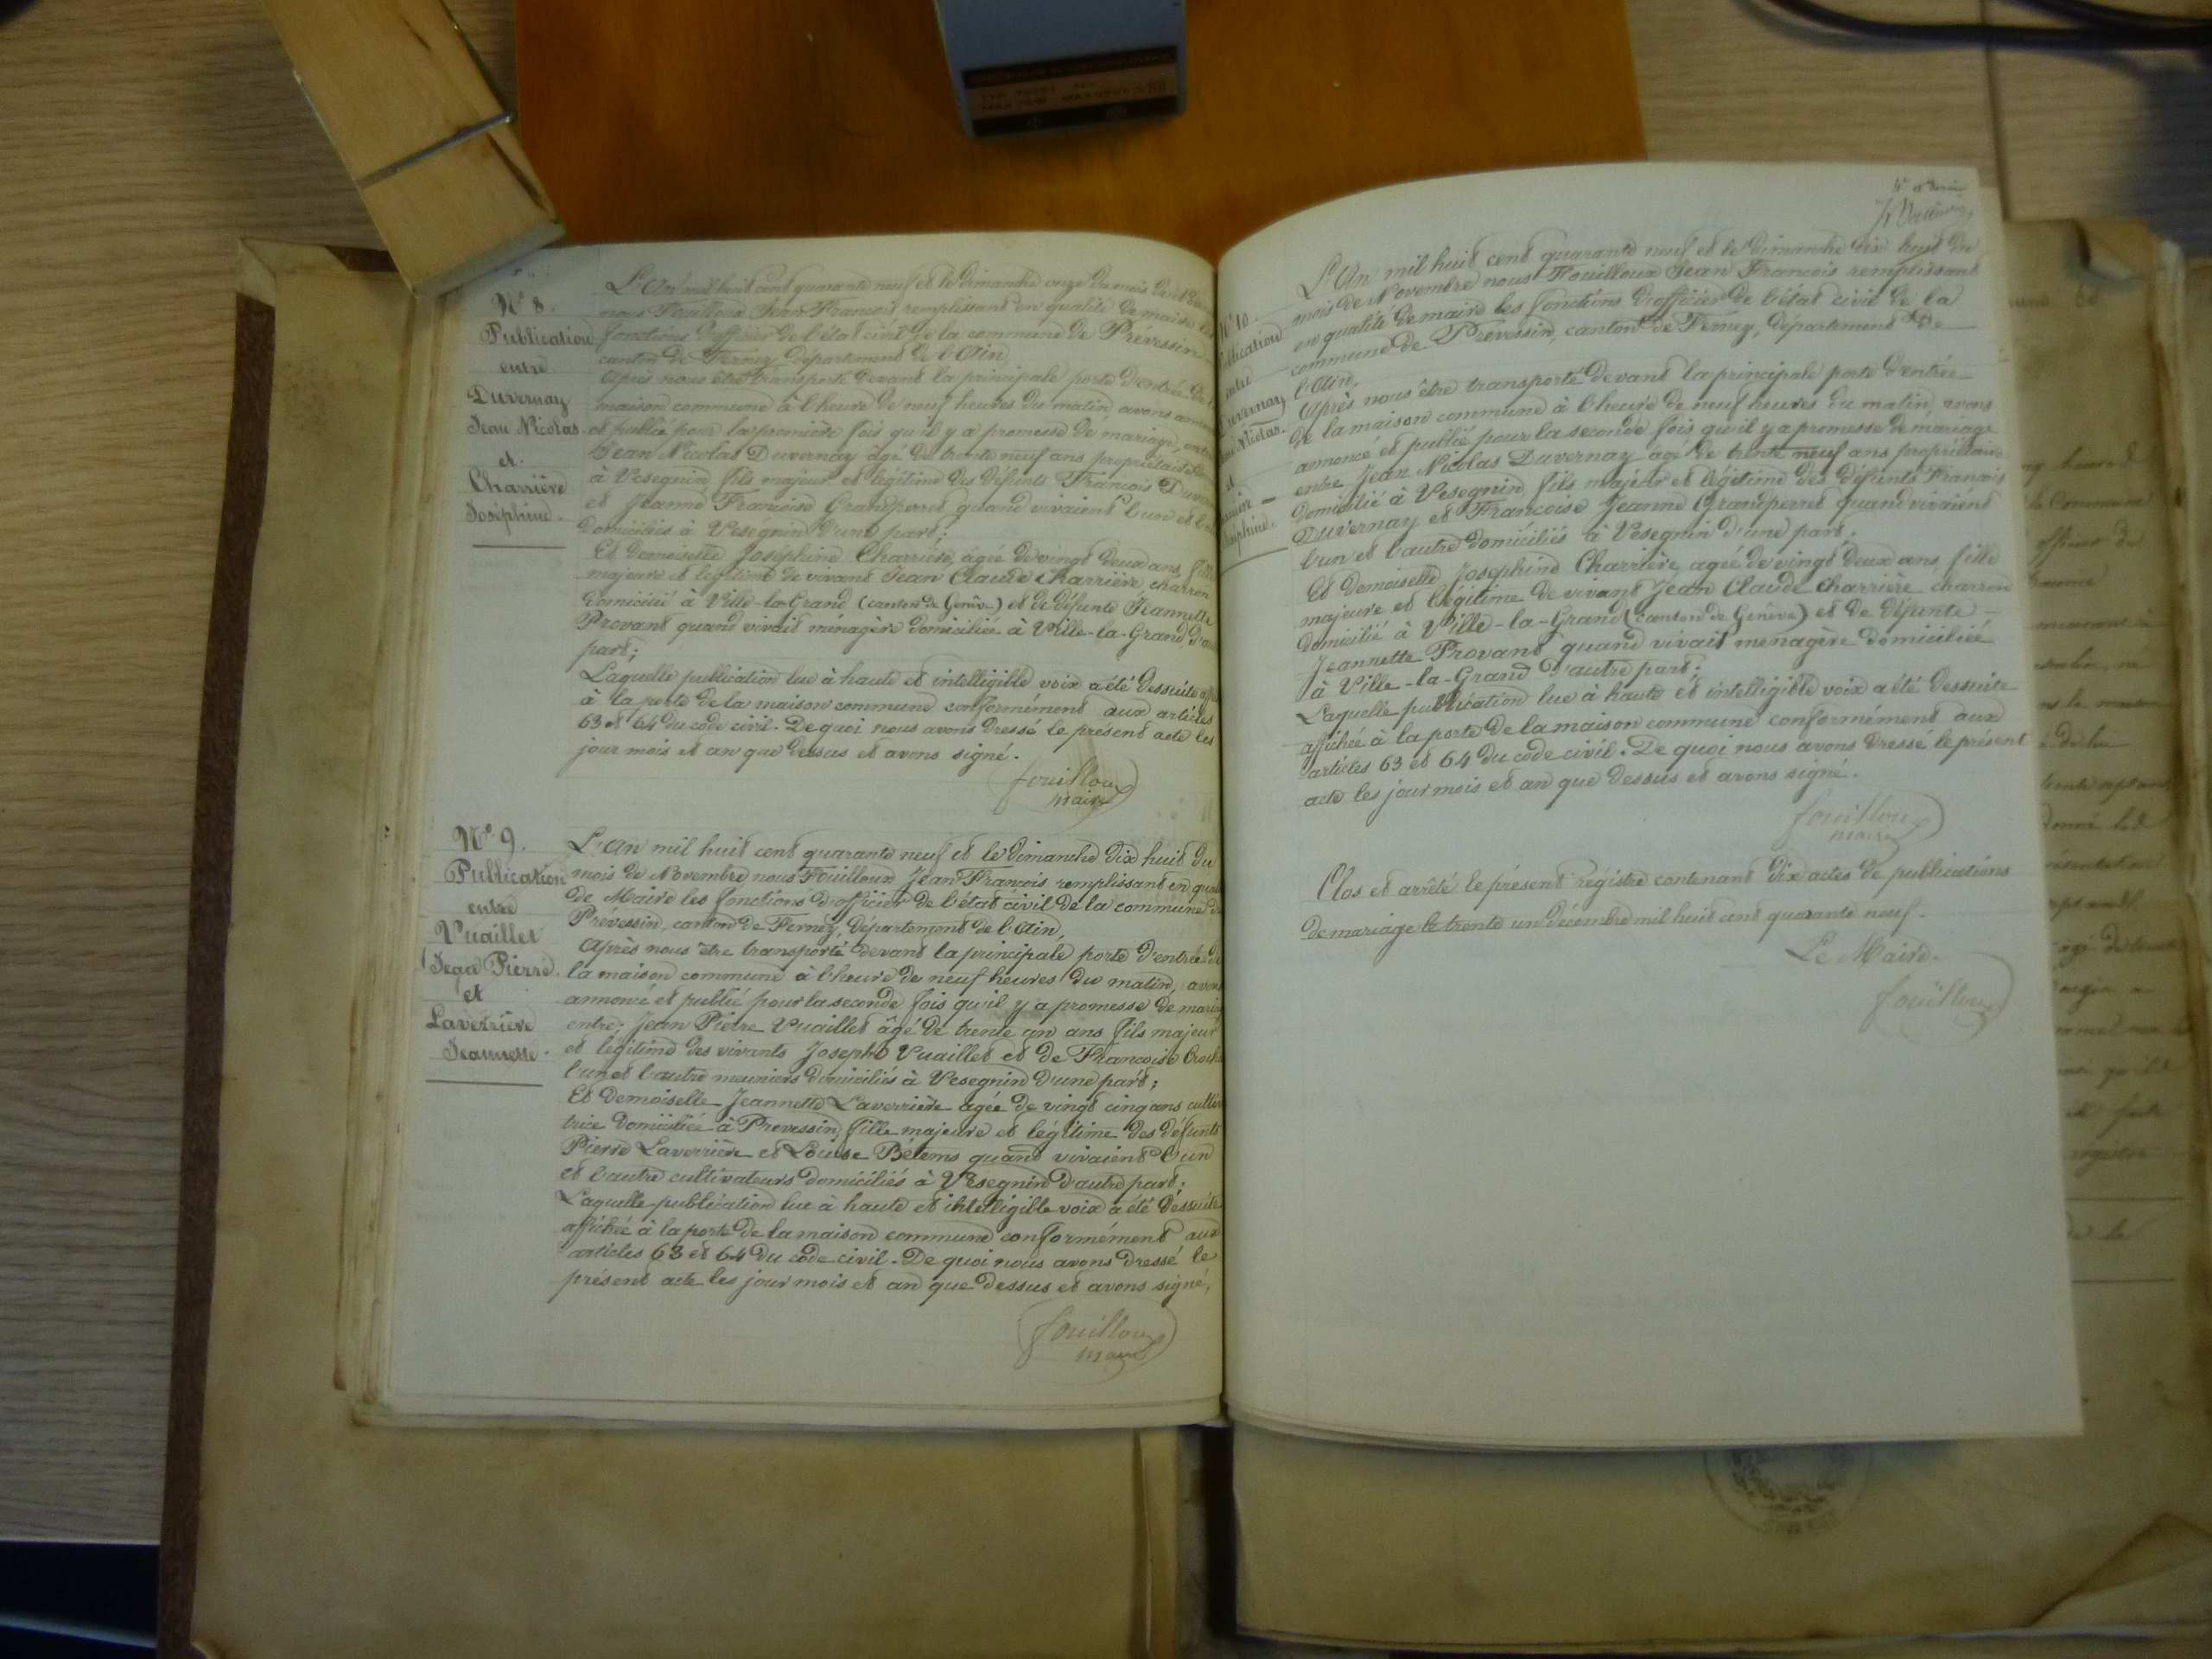 N° 8.
Publication
entre
Duvernay
Jean Nicolas.
et
Charrière
Joséphine.
L'An mil huit cent quarante neuf et le dimanche onze du mois de
nous Fouilloux Jean François remplissant en qualité de maire les
fonctions d'officier de l'état civil de la commune de Prévessin
canton de Ferney département de l'Ain
Après nous être transporté devant la principale porte d'entrée de
maison commune à l'heure de neuf heures du matin avons
et publié pour la première fois qu'il y a promesse de mariage, entre
Jean Nicolas Duvernay âgé de trente neuf ans propriétaire
à Vesegnin fils majeur et légitime des défunts François
et Jeanne Francoise Grandperret quand vivaient l'un et
domiciliés à Vesegnin d'une part;
Et demoiselle Joséphine Charrière, agée de vingt deux ans fille
majeure et légitime de vivant Jean Claude Charrière, charron
domicilié à Ville-la-Grand (canton de Genêve) et de défunte Jeannette
Provant quand vivait ménagère domiciliée à Ville-la-Grand
part;
Laquelle publication lue à haute et intelligible voix a été dessuite
à la porte de la maison commune conformément aux articles
63 et 64 du code civil. De quoi nous avons dressé le présent acte les
jour mois et an que dessus et avons signé.
fouilloux
maire
N° 9.
Publication
entre
Vuaillet
Jean Pierre.
et
Laverrière
Jeannette.
L'An mil huit cent quarante neuf et le dimanche dix huit du
mois de Novembre nous Fouilloux Jean François remplissant en
de Maire les fonctions d'officier de l'état civil de la commune de
Prévessin, canton de Ferney, département de l'Ain,
Après nous être transporté devant la principale porte d'entrée de
la maison commune à l'heure de neuf heures du matin, avons
annoncé et publié pour la seconde fois qu'il y a promesse de
entre; Jean Pierre Vuaillet âgé de trente un ans fils majeur
et légitime des vivants Joseph Vuaillet et de Francoise
l'un et l'autre meuniers domiciliés à Vesegnin d'une part;
Et demoiselle Jeannette Laverrière agée de vingt cinq ans culti
trice domiciliée à Prevessin, fille majeure et légitime des défunts
Pierre Laverrière et Louise Bétems quand vivaient l'un
et l'autre cultivateurs domiciliés à Vesegnin d'autre part;
Laquelle publication lue à haute et intelligible voix a été dessuite
affichée à la porte de la maison commune conformément aux
articles 63 et 64 du code civil. De quoi nous avons dressé le
présent acte les jour mois et an que dessus et avons signé,
fouilloux
maire
N° 10.
L'An mil huit cent quarante neuf et le dimanche dix huit du
mois de Novembre nous Fouilloux Jean Francois remplissant
en qualité de maire les fonctions d'officier de l'état civil de la
commune de Prévessin, canton de Ferney, département de
l'Ain,
Après nous être transporté devant la principale porte d'entrée
de la maison commune à l'heure de neuf heures du matin, avons
annoncé et publié pour la seconde fois qu'il y a promesse de mariage
entre Jean Nicolas Duvernay agé de trente neuf ans propriétaire
domicilié à Vesegnin fils majeur et légitime des défunts François
Duvernay et Francoise Jeanne Grandperret quand vivaient
l'un et l'autre domiciliés à Vesegnin d'une part;
Et demoiselle Joséphine Charrière, agée de vingt deux ans fille
majeure et légitime de vivant Jean Claude Charrière charron
domicilié à Ville-la-Grand (canton de Genêve) et de défunte
Jeannette Provant quand vivait ménagère domiciliée
à Ville-la-Grand d'autre part;
Laquelle publication lue à haute et intelligible voix a été dessuite
affichée à la porte de la maison commune conformément aux
articles 63 et 64 du code civil. De quoi nous avons dressé le présent
acte les jour mois et an que dessus et avons signé.
fouilloux
maire
Clos et arrêté le présent registre contenant dix actes de publications
de mariage le trente un décembre mil huit cent quarante neuf.
Le Maire.
fouilloux